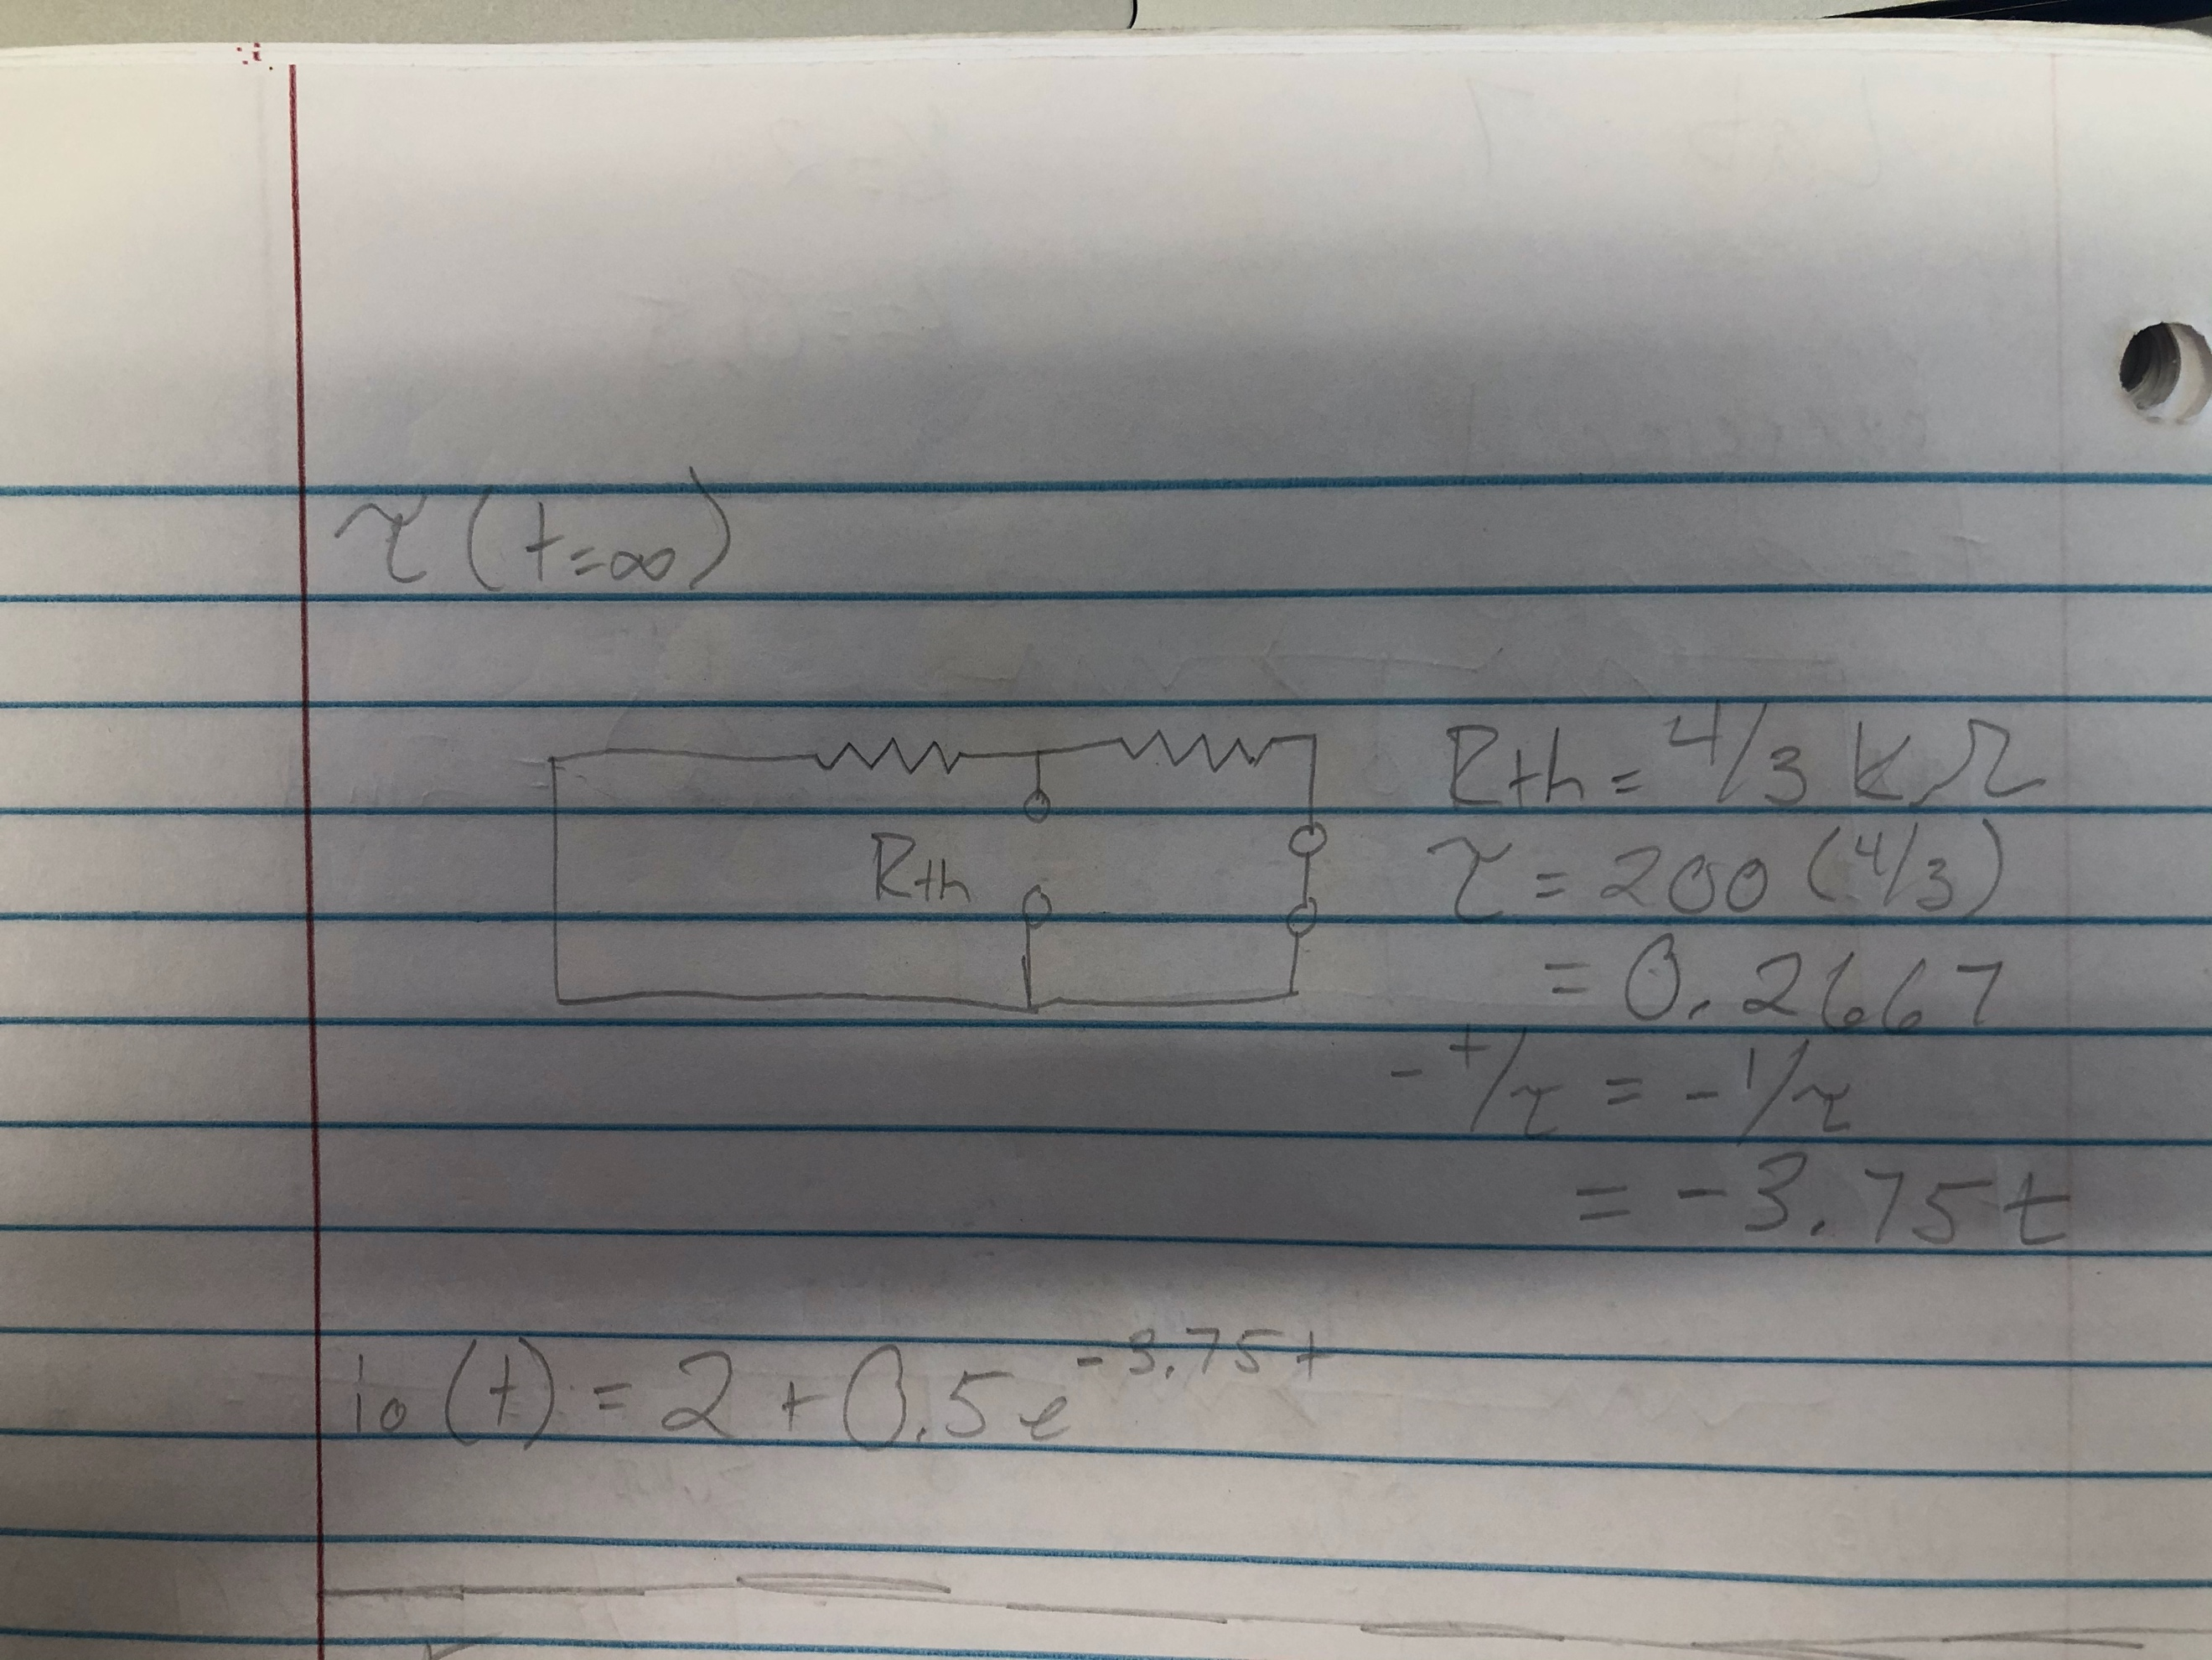 τ(t=∞)
Rth
Rth = 4/3 kΩ
τ = 200 (4/3)
= 0.2667
-t/τ = -1/τ
= -3.75t
io(t) = 2 + 0.5e^-3.75t